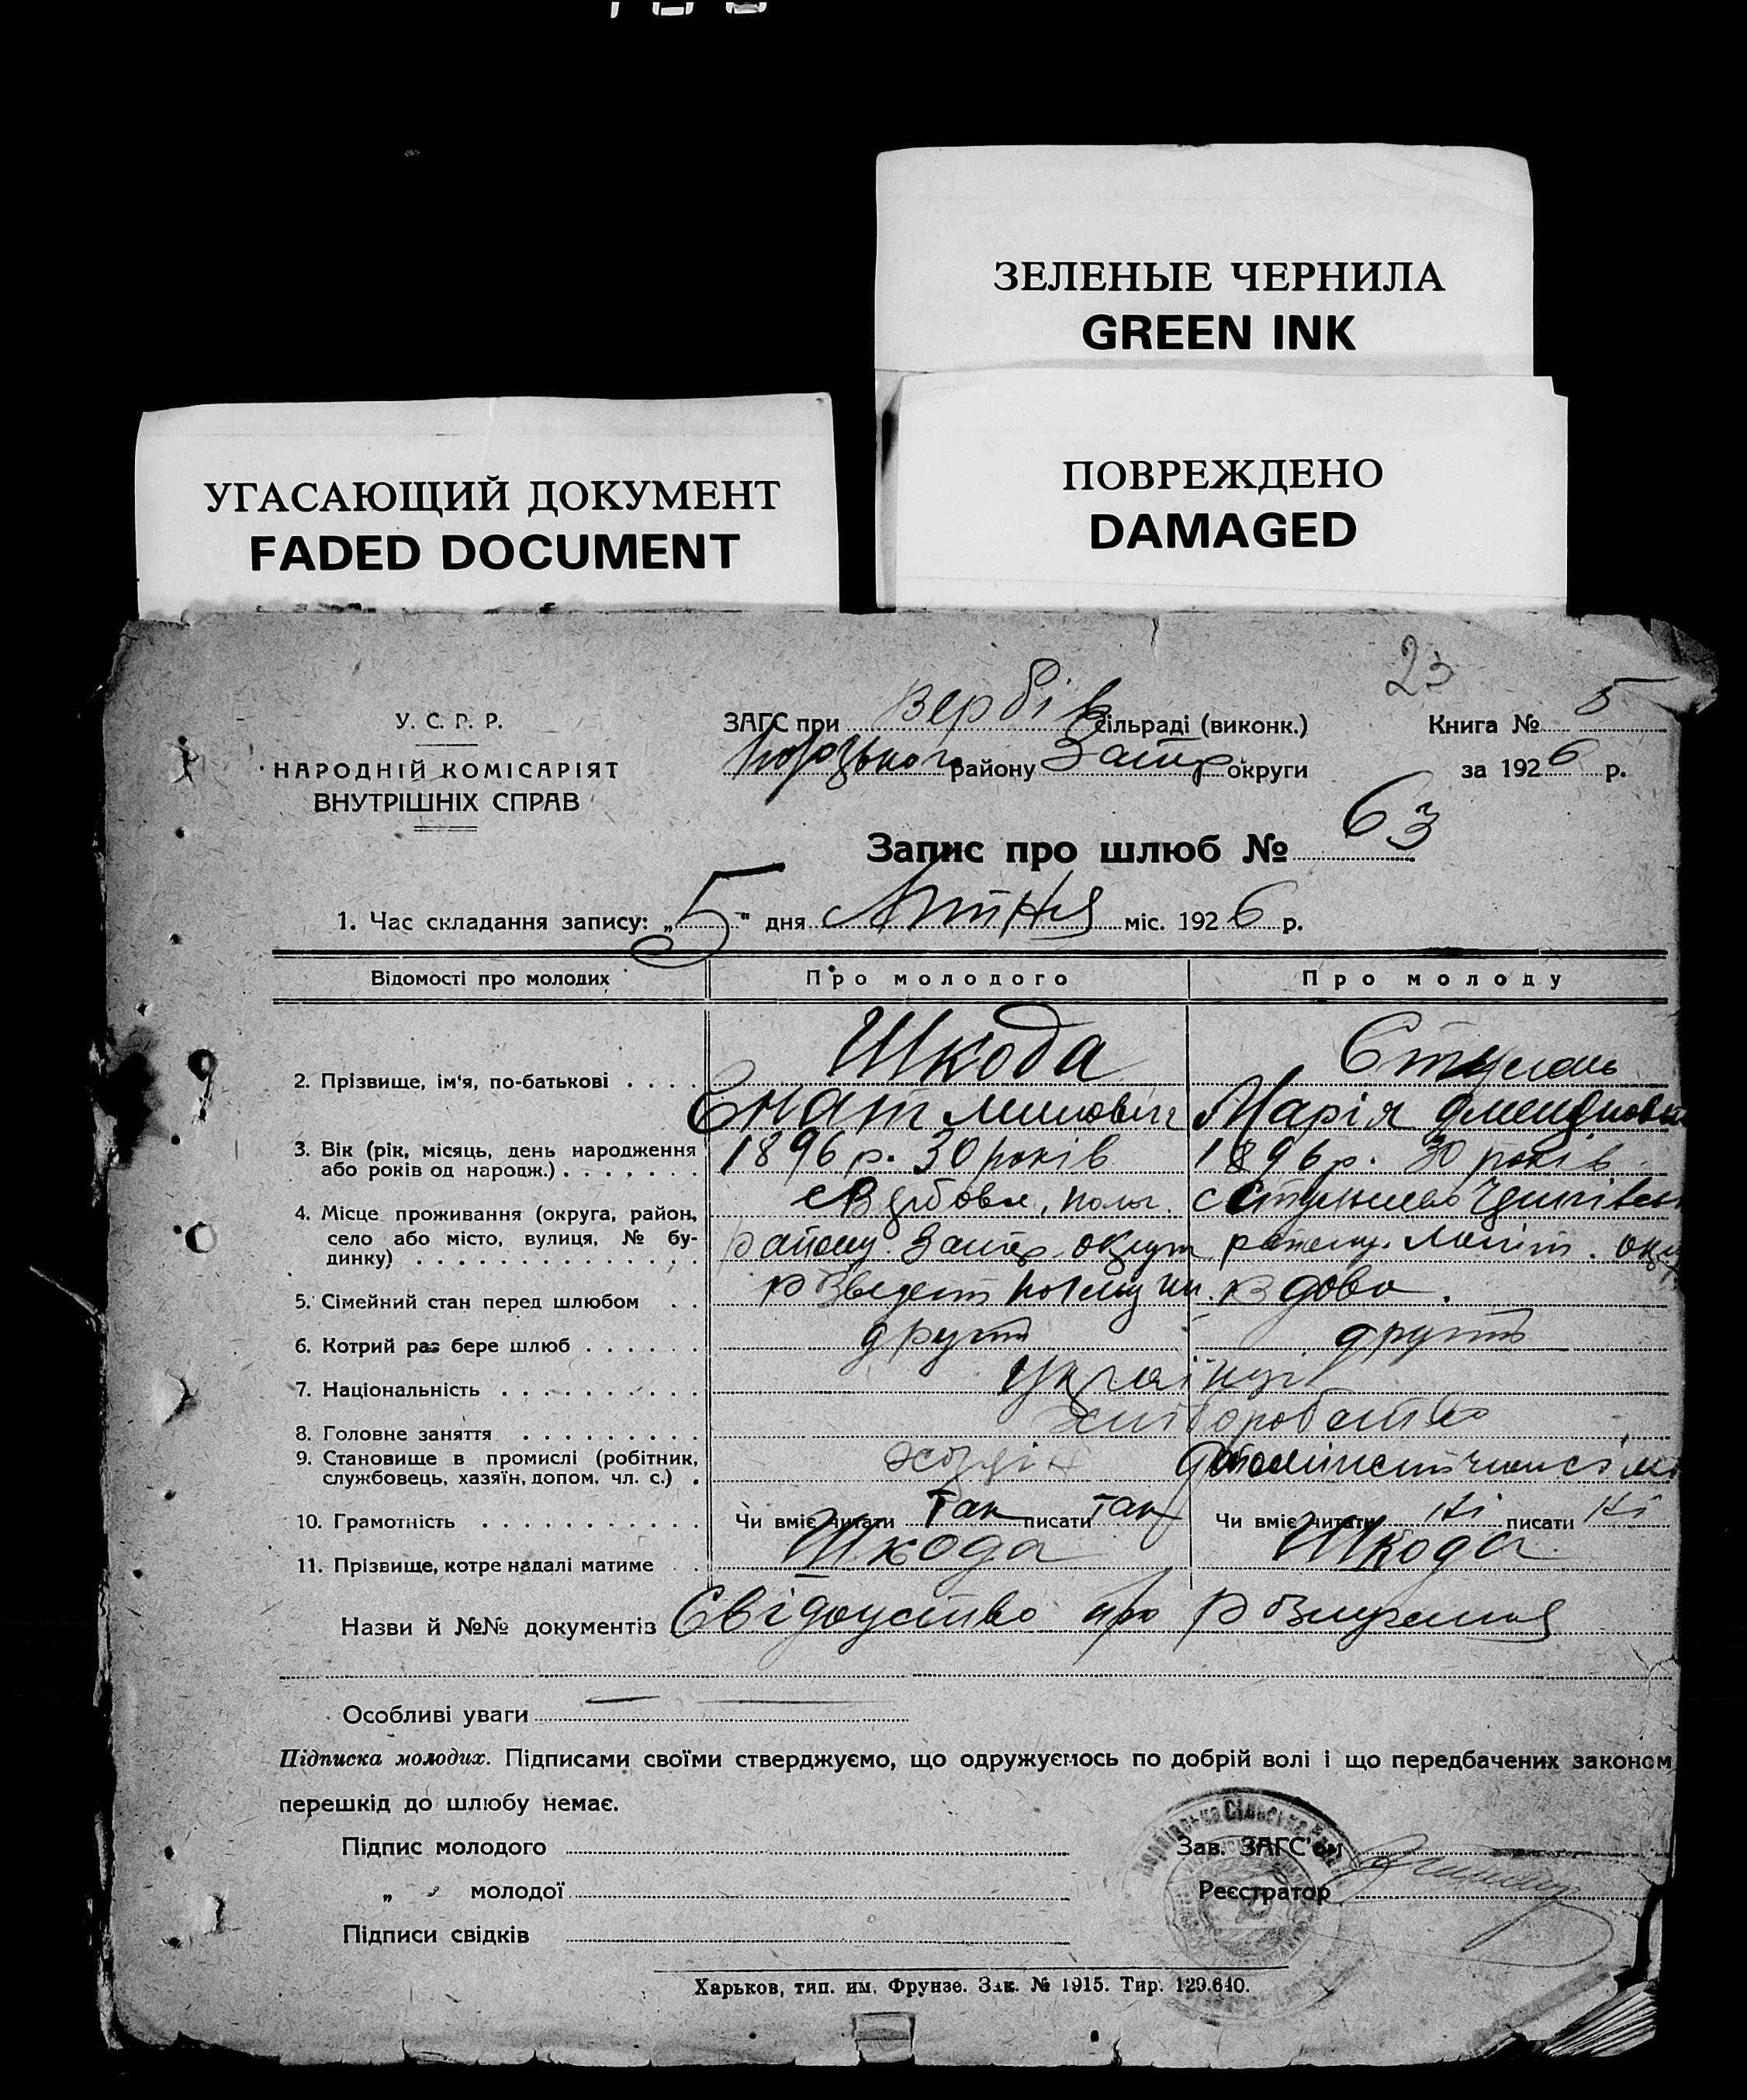 ЗЕЛЕНЫЕ ЧЕРНИЛА
GREEN INK
УГАСАЮЩИЙ ДОКУМЕНТ
FADED DOCUMENT
ПОВРЕЖДЕНО
DAMAGED
23
У. С. Р. Р.
НАРОДНІЙ КОМІСАРІЯТ
ВНУТРІШНІХ СПРАВ
ЗАГС при Вербів сільраді (виконк.)
району Запор округи
Книга № 5
за 1926 р.
Запис про шлюб № 63
1. Час складання запису: „5" дня Липня міс. 1926 р.
Відомості про молодих Про молодого Про молоду
2. Прізвище, ім'я, по-батькові . . . . Шкода
Гнат Марія
3. Вік (рік, місяць, день народження або років од народж.) . . . . . . . 1896 р. 30 років 1896 р. 30 років
4. Місце проживання (округа, район, село або місто, вулиця, № будинку) . . . . . . . . . . . . . с Вербове, полог.
району Запор. округи району.
5. Сімейний стан перед шлюбом . . вдова.
6. Котрий раз бере шлюб . . . . . . другий другий
7. Національність . . . . . . . . . . Українці
8. Головне заняття . . . . . . . . . хліборобство
9. Становище в промислі (робітник, службовець, хазяїн, допом. чл. с.) .
10. Грамотність . . . . . . . . . . . Чи вміє читати так писати так Чи вміє читати ні писати ні
11. Прізвище, котре надалі матиме . Шкода Шкода
Назви й №№ документів Свідоцтво про
Особливі уваги
Підписка молодих. Підписами своїми стверджуємо, що одружуємось по добрій волі і що передбачених законом
перешкід до шлюбу немає.
Підпис молодого
„ молодої
Підписи свідків
Зав. ЗАГС'ом
Реєстратор
Харьков, тип. им. Фрунзе. Зак. № 1915. Тир. 129.640.